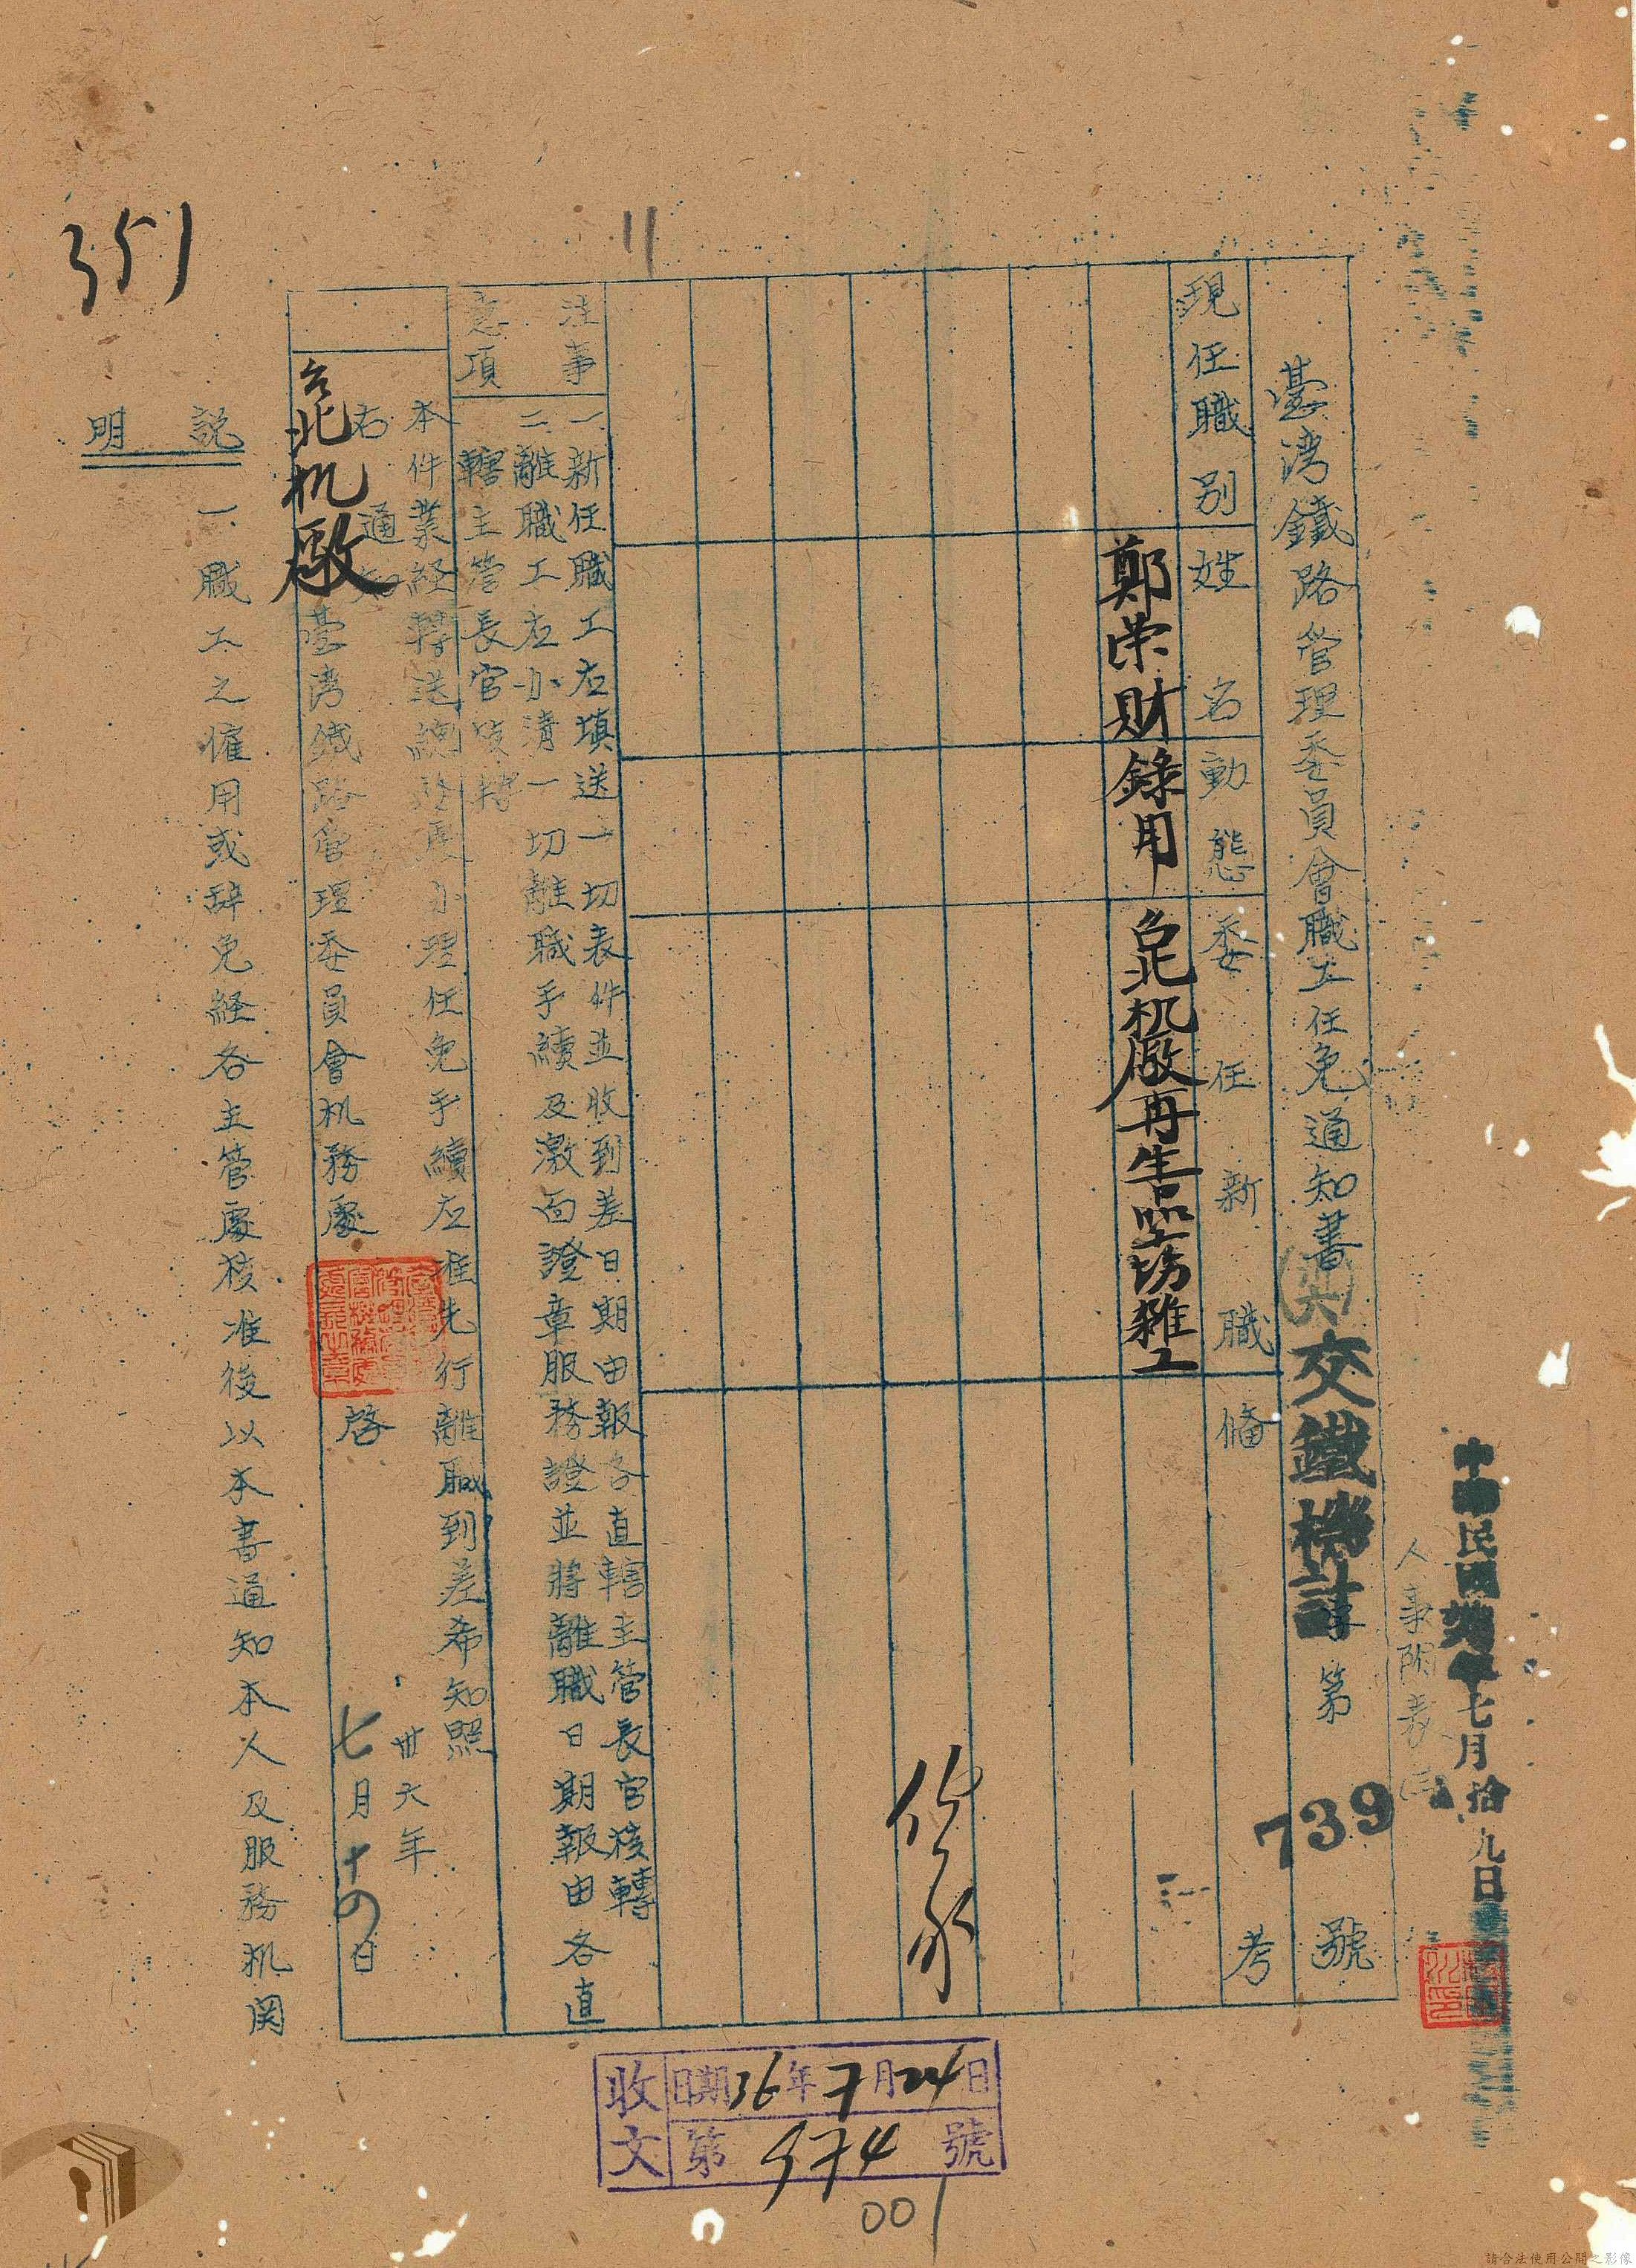 中華民國 年七月拾九日
人事附表
臺湾鐵路管理委員會職工任免通知書
(卅六)交鐵機
字第739號
現任職別
姓名
動態
委任新職
備考
鄭荣財
錄用
台北机厰再生品工場雜工
注意事項
一、新任職工应填送一切表件並收到差日期由報各直轄主管長官核轉
二、離職工应办清一切離職手續及激面證章服務證並將離職日期報由各直
轄主管長官核轉
本件業経轉送總務處办理任免手續应准先行離職到差希知照
右通知
台北机厰
臺湾鐵路管理委員會机務處
啓
卅六年
七月十四日
説明
一、職工之僱用或辞免経各主管處核准後以本書通知本人及服務机関
351
11
收文
日期36年7月24日
第974號
001
請合法使用公開之影像